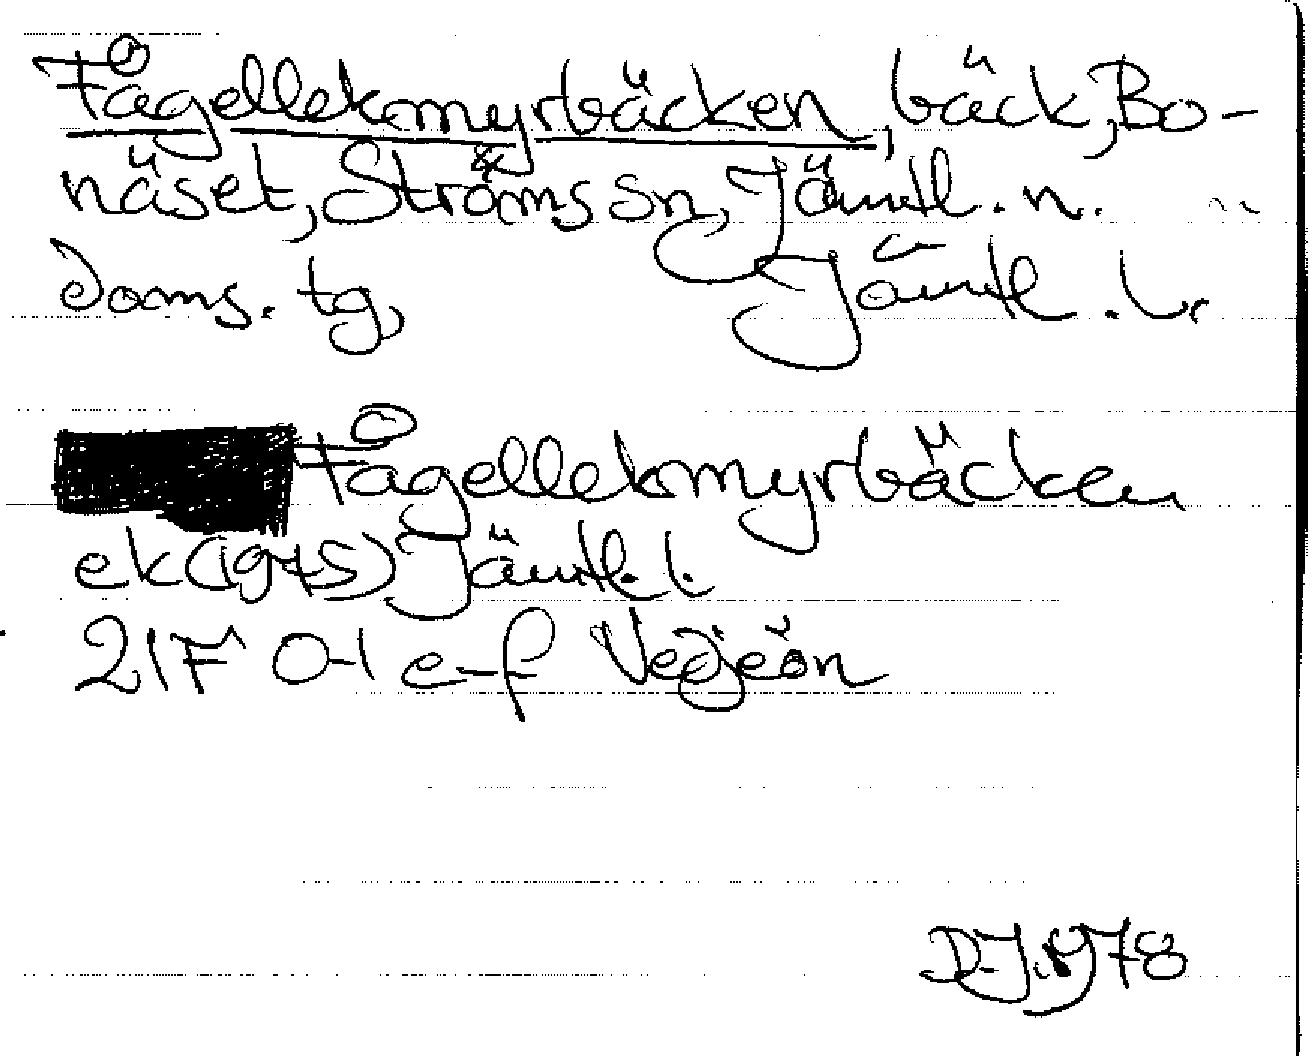 Fågellekmyrbäcken, bäck, Bo-
näset, Ströms sn, Jämtl. n.
doms. tg, Jämtl. l.
Fågellekmyrbäcken
ek (1975) Jämtl. l.
21F 0-1 e-f Vedjeön
D.J. 1978